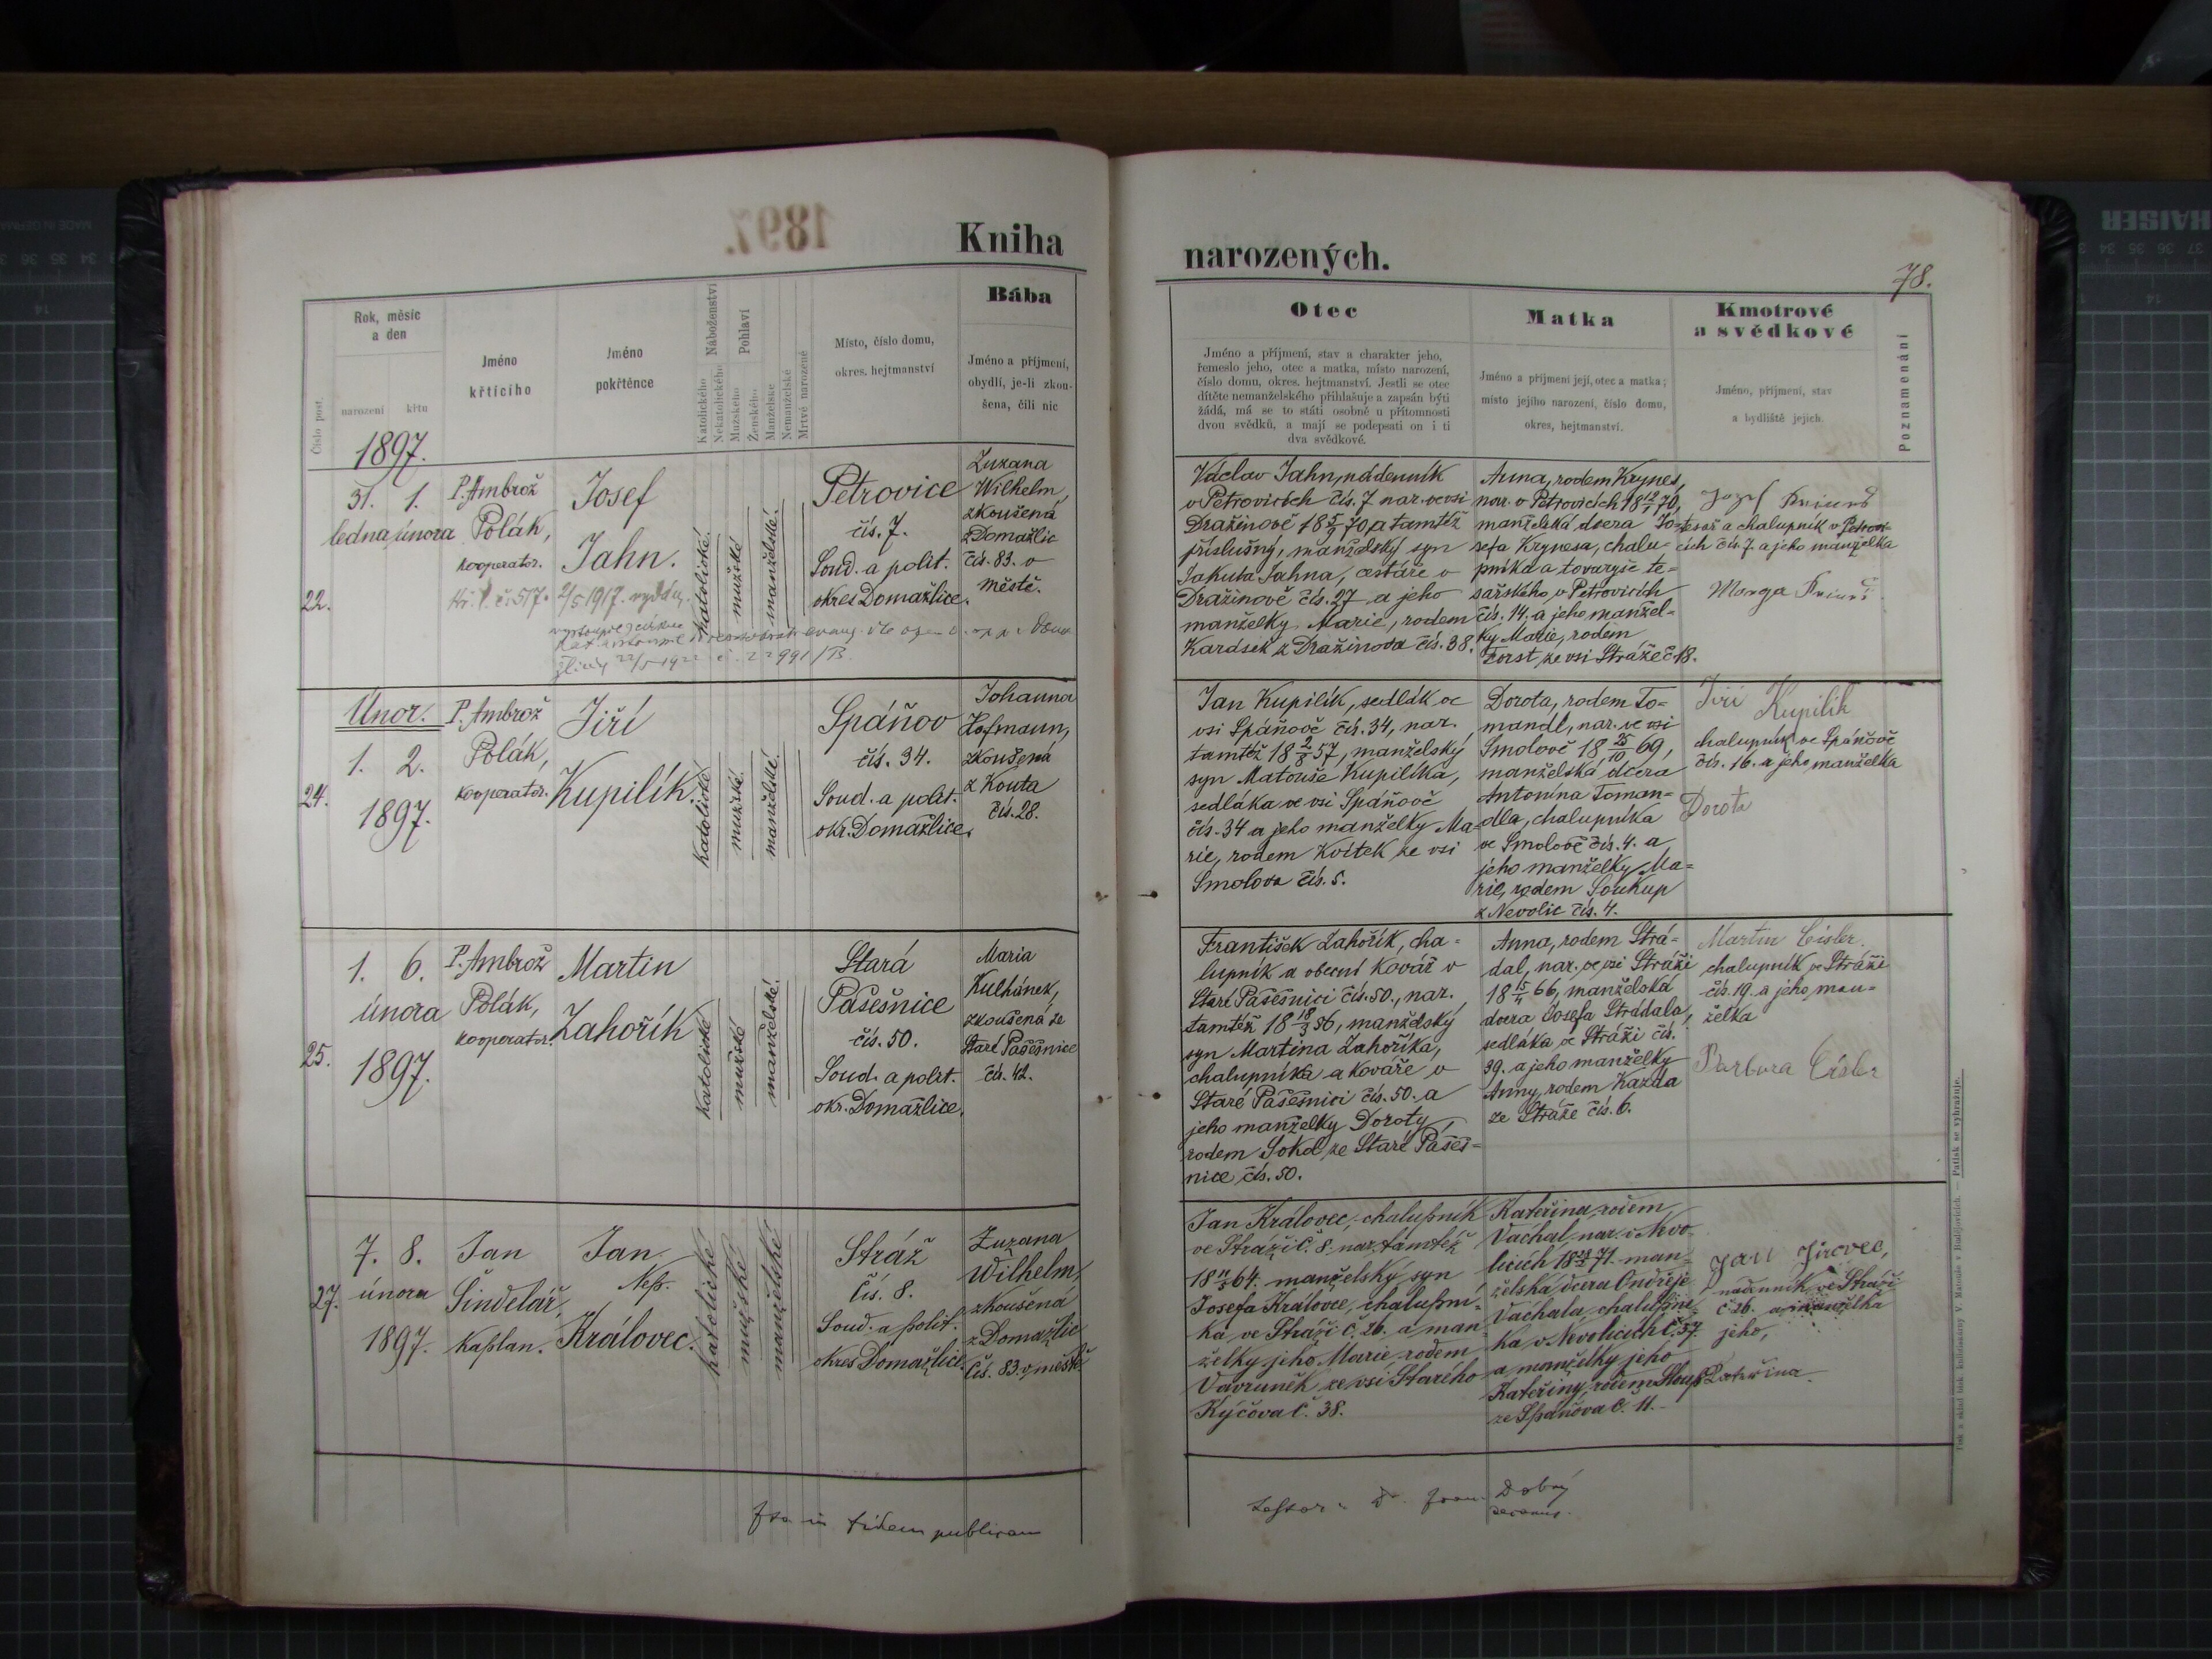 Kniha
narozených.
78.
Rok, měsíc
a den
narození křtu
Číslo post.
Jméno
křtícího
Jméno
pokřtěnce
Náboženství
Katolického
Nekatolického
Pohlaví
Mužského
Ženského
Manželské
Nemanželské
Mrtvě narozené
Místo, číslo domu,
okres. hejtmanství
Bába
Jméno a příjmení,
obydlí, je-li zkou-
šena, čili nic
Otec
Jméno a příjmení, stav a charakter jeho,
řemeslo jeho, otec a matka, místo narození,
číslo domu, okres. hejtmanství. Jestli se otec
dítěte nemanželského přihlašuje a zapsán býti
žádá, má se to státi osobně u přítomnosti
dvou svědků, a mají se podepsati on i ti
dva svědkové.
Matka
Jméno a příjmení její, otec a matka;
místo jejího narození, číslo domu,
okres, hejtmanství.
Kmotrové
a svědkové
Jméno, příjmení, stav
a bydliště jejich.
Poznamenání
1897.
22.
31. 1.
ledna února
P. Ambrož
Polák,
kooperator.
Josef
Jahn.
katolické.
mužské
manželské.
Petrovice
čís. 7.
Soud. a polit.
okres Domažlice.
Zuzana
Wilhelm,
zkoušená
z Domažlic
čís. 83. v
městě.
č. 517. 2/5 1917. vydán.
22991/B.
Václav Jahn, nádenník
v Petrovicích čís. 7 nar. ve vsi
Dražinově 18 70, a tamtéž
příslušný, manželský syn
Jakuba Jahna, cestáře v
Dražinově čís. 27 a jeho
manželky Marie, rodem
Karásek z Dražinova čís. 38.
Anna, rodem Krynes,
nar. v Petrovicích 18 12/1 70,
manželská dcera Jo-
sefa Krynesa, chalu-
pníka a tovaryše te-
sařského v Petrovicích
čís. 14. a jeho manžel-
ky Marie, rodem
Forst, ze vsi Stráže č 18.
Josef
tesař a chalupník v Petrovi-
cích čís. 7. a jeho manželka
24.
Únor.
1. 2.
1897.
P. Ambrož
Polák,
kooperator.
Jiří
Kupilík.
katolické
mužské.
manželské.
Spáňov
čís. 34.
Soud. a polit.
okr. Domažlice.
Johanna
Hofmann,
zkoušená
z Kouta
čís. 28.
Jan Kupilík, sedlák ve
vsi Spáňově čís. 34, nar.
tamtéž 18 2/8 57, manželský
syn Matouše Kupilíka,
sedláka ve vsi Spáňově
čís. 34 a jeho manželky Ma-
rie, rodem Kvitek ze vsi
Smolova čís. 5.
Dorota, rodem To-
mandl, nar. ve vsi
Smolově 18 25/10 69,
manželská dcera
Antonína Toman-
dla, chalupníka
ve Smolově čís. 4. a
jeho manželky Ma-
rie, rodem Soukup
z Nevolic čís. 4.
Jiří Kupilík
chalupník ve Spáňově
čís. 16. a jeho manželka
Dorota
25.
1. 6.
února
1897.
P. Ambrož
Polák,
kooperator.
Martin
Zahořík
katolické
mužské
manželské.
Stará
Pašešnice
čís. 50.
Soud. a polit.
okr. Domažlice.
Maria
Kulhánek,
zkoušená ze
Staré Pašešnice
čís. 42.
František Zahořík, cha-
lupník a obecní kovář v
Staré Pašešnici čís. 50., nar.
tamtéž 18 18/3 56, manželský
syn Martina Zahoříka,
chalupníka a kováře v
Staré Pašešnici čís. 50. a
jeho manželky Doroty,
rodem Sokol ze Staré Pašeš-
nice čís. 50.
Anna, rodem Strá-
dal, nar. ve vsi Stráži
18 66, manželská
dcera Josefa Strádala,
sedláka ve Stráži čís.
39. a jeho manželky
Anny, rodem Kazda
ze Stráže čís. 6.
Martin Císler.
chalupník ve Stráži
čís. 19. a jeho man-
želka
Barbora Císler
27.
7. 8.
února
1897.
Jan
Šindelář,
kaplan.
Jan
Nep.
Královec.
katolické
mužské
manželské
Stráž
čís. 8.
Soud. a polit.
okres Domažlice.
Zuzana
Wilhelm,
zkoušená
z Domažlic
čís. 83. v městě
Jan Královec, chalupník
ve Stráži č. 8. nar. tamtéž
18 64. manželský syn
Josefa Královce, chalupní-
ka ve Stráži č. 26. a man-
želky jeho Marie rodem
Vavruněk ze vsi Starého
Kýčova č. 38.
Kateřina, rodem
Váchal, nar. v Nevo-
licích 18 71. man-
želská dcera Ondřeje
Váchala, chalupní-
ka v Nevolicích č. 37.
a manželky jeho
Kateřiny, rodem Sloup
ze Spáňova č. 11.
Jan Jírovec,
nádenník ve Stráži
č 26. a manželka
jeho,
Kateřina.
Ita in fidem publicam
Dobrý
decanus.